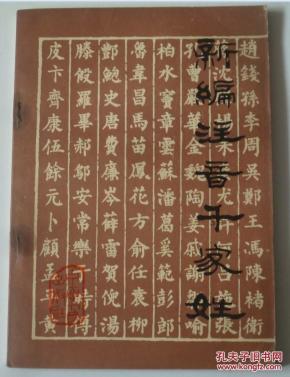 新編注音千家姓
趙錢孫李周吳鄭王馮陳褚衛
沈朱尤何施張
曹嚴華金魏陶姜戚謝喻
柏水竇章雲蘇潘葛奚范彭郎
魯韋昌馬苗鳳花方俞任袁柳
酆鮑史唐費廉岑薛雷賀倪湯
滕殷羅畢郝鄔安常樂時傅
皮卞齊康伍餘元卜顧孟黃
孔夫子旧书网